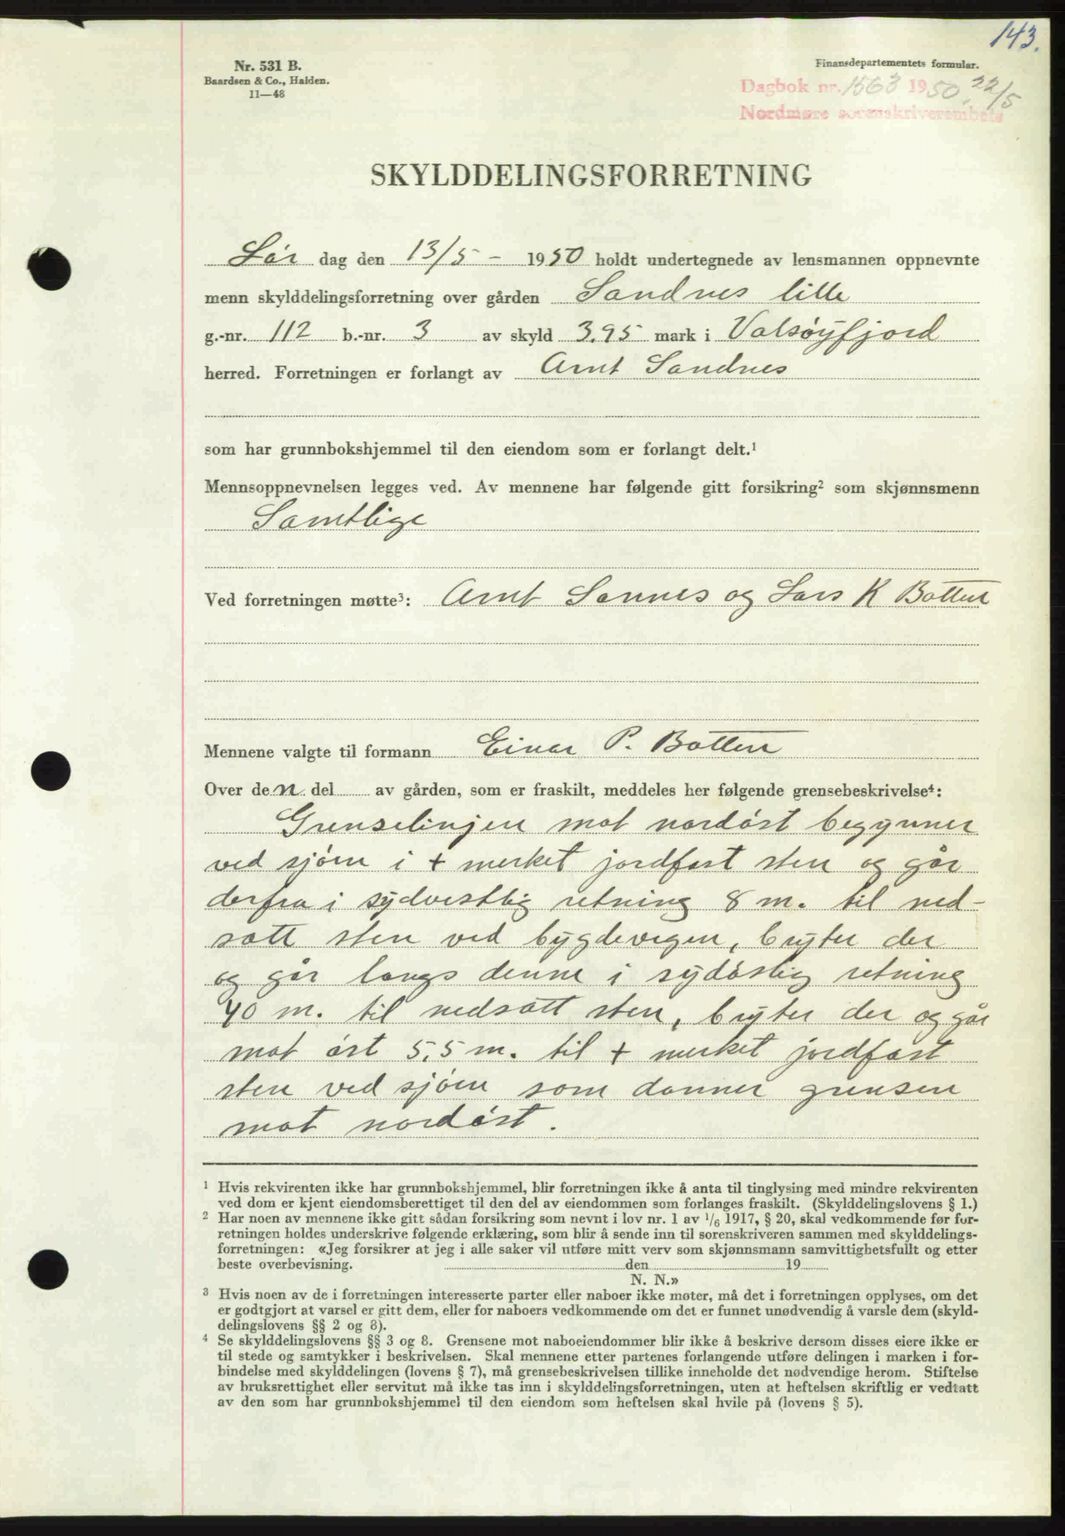 143.
Nr. 531 B.
Baardsen & Co., Halden.
11—48
Finansdepartementets formular.
Dagbok nr. 1563 1950, 22/5
Nordmøre sorenskriverembete
SKYLDDELINGSFORRETNING
Lør dag den 13/5 - 1950 holdt undertegnede av lensmannen oppnevnte
menn skylddelingsforretning over gården Sandnes lille
g.-nr. 112 b.-nr. 3 av skyld 3.95 mark i Valsøyfjord
herred. Forretningen er forlangt av Arnt Sandnes
som har grunnbokshjemmel til den eiendom som er forlangt delt.¹
Mennsoppnevnelsen legges ved. Av mennene har følgende gitt forsikring² som skjønnsmenn
Samtlige
Ved forretningen møtte³: Arnt Sannes og Lars K Botten
Mennene valgte til formann Einar P. Botten
Over den del av gården, som er fraskilt, meddeles her følgende grensebeskrivelse⁴:
Grenselinjen mot nordøst begynner
ved sjøen i + merket jordfast sten og går
derfra i sydvestlig retning 8 m. til ned-
satt sten ved bygdevegen, bryter der
og går langs denne i sydøstlig retning
40 m. til nedsatt sten, bryter der og går
mot øst 5,5 m. til + merket jordfast
sten ved sjøen som danner grensen
mot nordøst.
¹ Hvis rekvirenten ikke har grunnbokshjemmel, blir forretningen ikke å anta til tinglysing med mindre rekvirenten
ved dom er kjent eiendomsberettiget til den del av eiendommen som forlanges fraskilt. (Skylddelingslovens § 1.)
² Har noen av mennene ikke gitt sådan forsikring som nevnt i lov nr. 1 av 1/6 1917, § 20, skal vedkommende før fur-
retningen holdes underskrive følgende erklæring, som blir å sende inn til sorenskriveren sammen med skylddelings-
forretningen: «Jeg forsikrer at jeg i alle saker vil utføre mitt verv som skjønnsmann samvittighetsfullt og etter
beste overbevisning. den 19
N. N.»
³ Hvis noen av de i forretningen interesserte parter eller naboer ikke møter, må det i forretningen opplyses, om det
er godtgjort at varsel er gitt dem, eller for naboers vedkommende om det er funnet unødvendig å varsle dem (skyld-
delingslovens §§ 2 og 8).
⁴ Se skylddelingslovens §§ 3 og 8. Grensene mot naboeiendommer blir ikke å beskrive dersom disses eiere ikke er
til stede og samtykker i beskrivelsen. Skal mennene etter partenes forlangende utføre delingen i marken i for-
bindelse med skylddelingen (lovens § 7), må grensebeskrivelsen tillike inneholde det nødvendige herom. Stiftelse
av bruksrettighet eller servitut må ikke tas inn i skylddelingsforretningen, uten at heftelsen skriftlig er vedtatt
av den som har grunnbokshjemmel til den eiendom som heftelsen skal hvile på (lovens § 5).